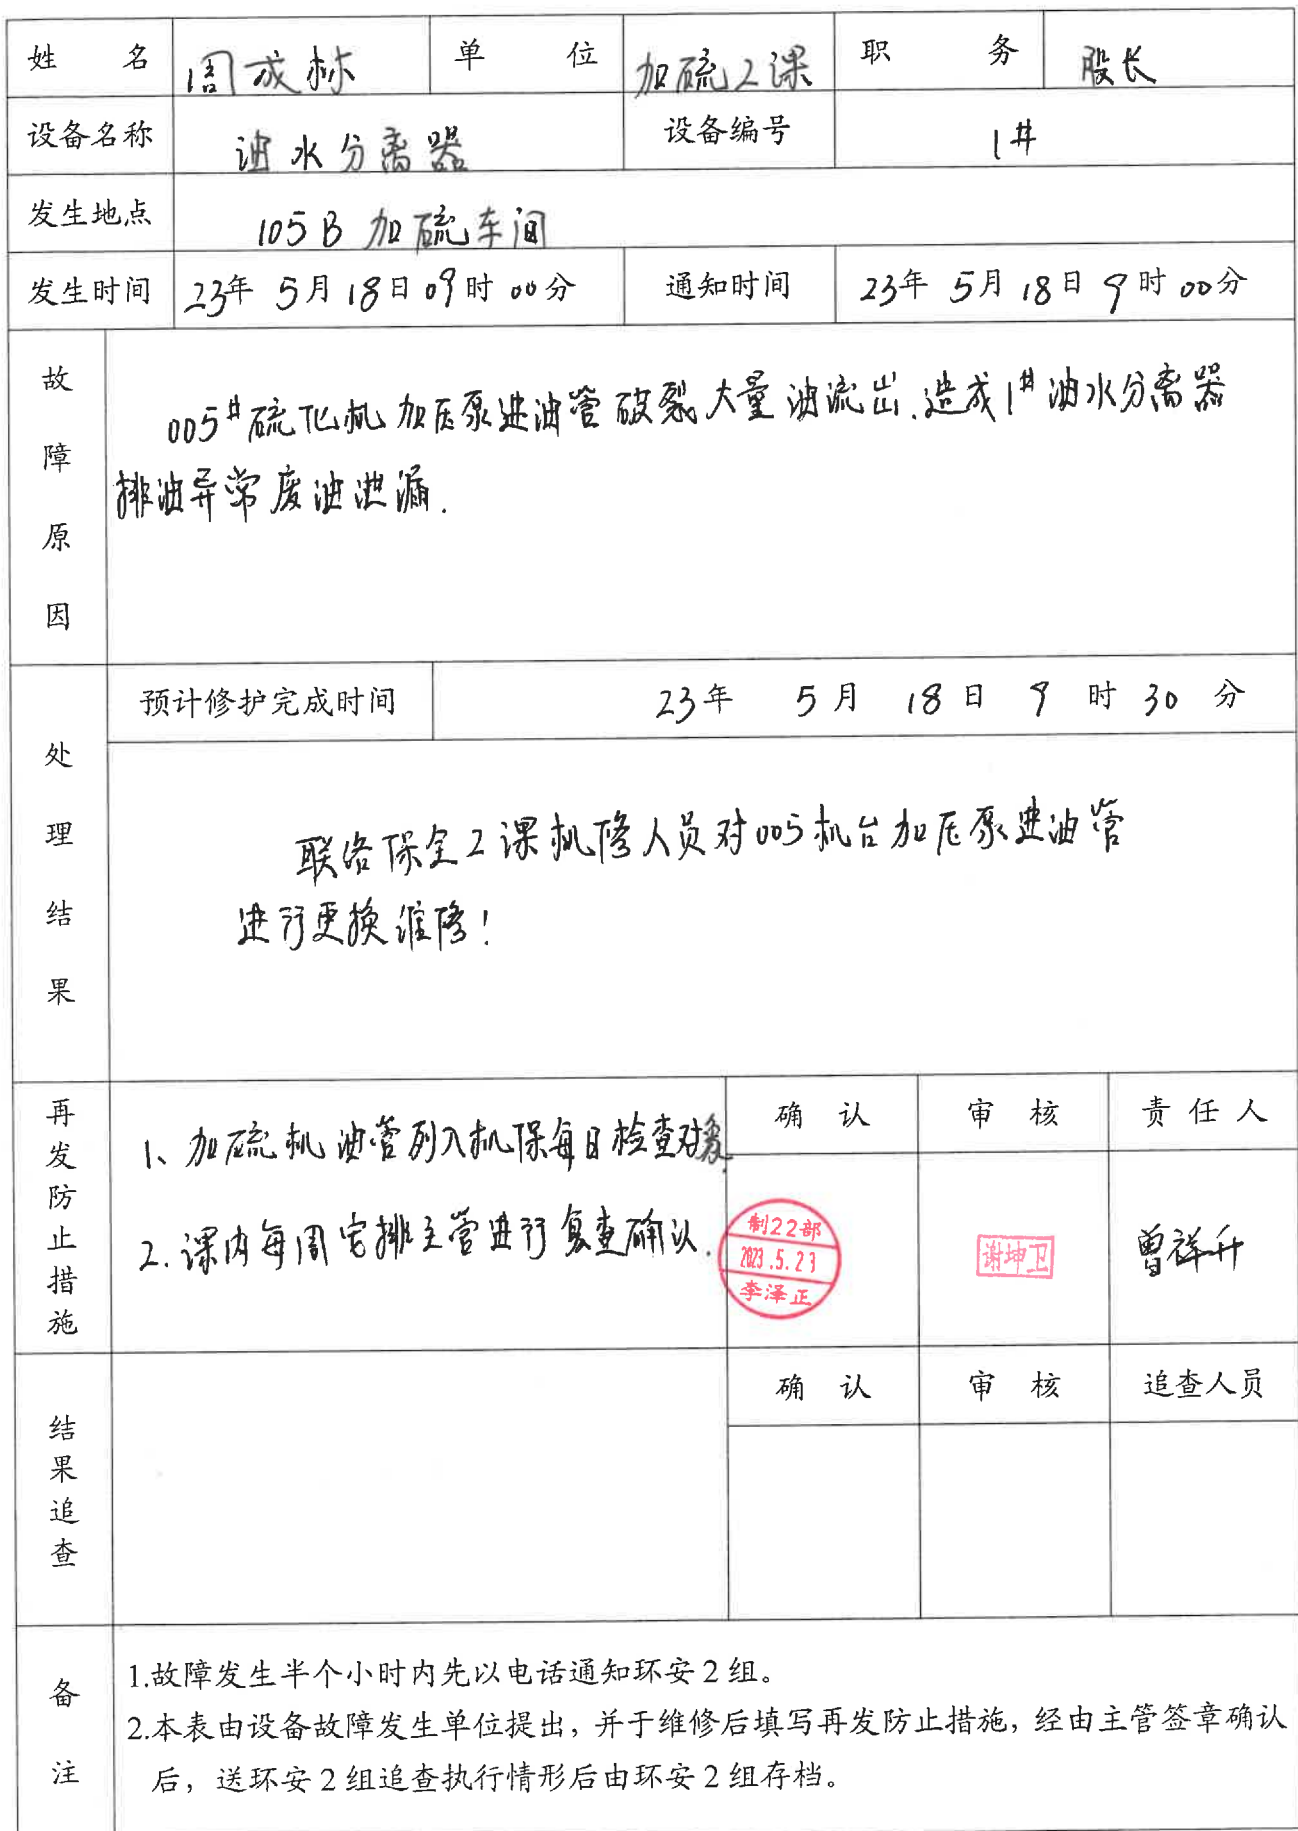 姓 名 周成林 单 位 加硫2课 职 务 股长
设备名称 油水分离器 设备编号 1#
发生地点 105B 加硫车间
发生时间 23年 5月 18日 09时 00分 通知时间 23年 5月 18日 9时 00分
故障原因
005#硫化机加压泵进油管破裂大量油流出.造成1#油水分离器
排油异常废油泄漏.
处理结果
预计修护完成时间 23年 5月 18日 9时 30分
联络保全2课机修人员对005机台加压泵进油管
进行更换维修!
再发防止措施
1、加硫机油管列入机保每日检查对象.
2.课内每周安排主管进行复查确认.
确 认 审 核 责 任 人
制22部
2023.5.23
李泽正
谢坤卫
曾祥升
结果追查
确 认 审 核 追查人员
备注
1.故障发生半个小时内先以电话通知环安2组。
2.本表由设备故障发生单位提出，并于维修后填写再发防止措施，经由主管签章确认
后，送环安2组追查执行情形后由环安2组存档。